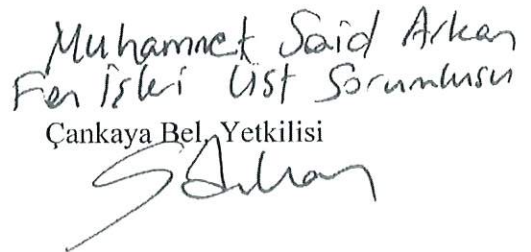 Muhammet Said Arkan
Fen İşleri Üst Sorumlusu
Çankaya Bel. Yetkilisi
SArkan